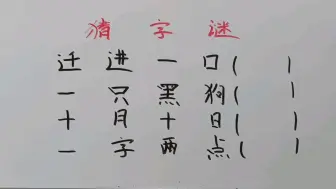 猜字谜
迁进一口( )
一只黑狗( )
十月十日( )
一字两点( )